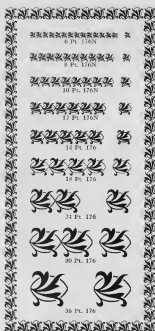 6 Pt. 176N
8 Pt. 176N
10 Pt. 176N
12 Pt. 176N
14 Pt. 176
18 Pt. 176
24 Pt. 176
30 Pt. 176
36 Pt. 176